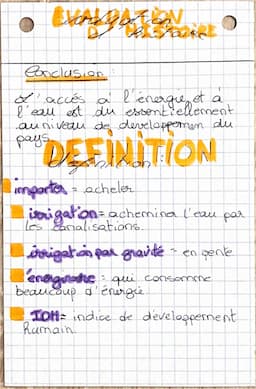 EVALUATION
D'HISTOIRE
Conclusion :
L'accés à l'énergie et à
l'eau est du essentiellement
au niveau de developpemen du
pays
DEFINITION
importer = acheter
irrigation = achemina l'eau par
les canalisations.
irrigation par gravité = en pente
énergivore : qui consomme
beaucoup d'énergie
IDH = indice de développement
humain.